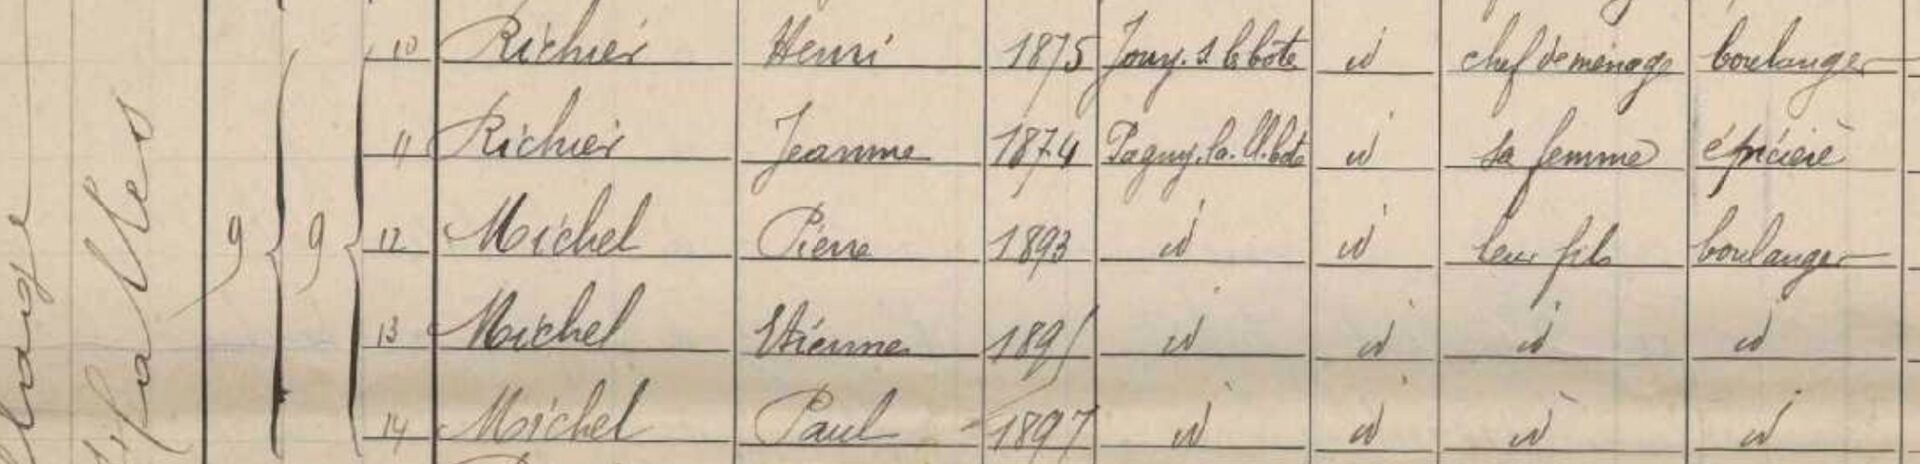 10 Richier Henri 1875 Jouy. s les côtes id chef de ménage boulanger
11 Richier Jeanne 1874 Pagny. la. Bl. côte id sa femme épicière
9 9 12 Michel Pierre 1893 id id leur fils boulanger
13 Michel Etienne 1895 id id id id
14 Michel Paul 1897 id id id id